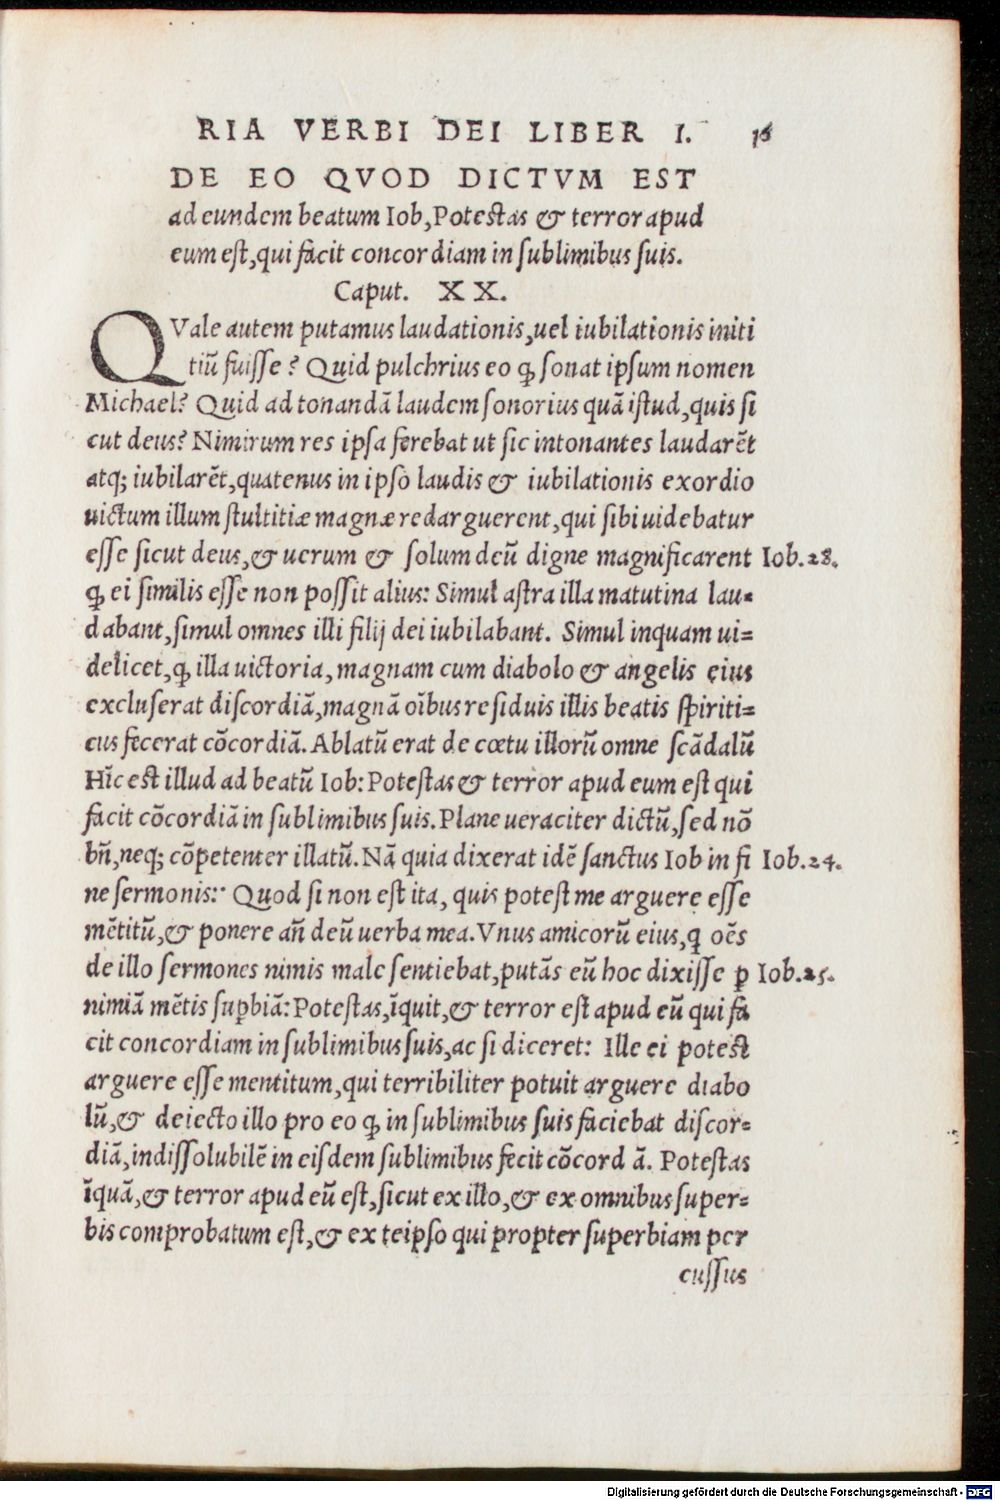 RIA VERBI DEI LIBER I. 16
DE EO QVOD DICTVM EST
ad eundem beatum Iob, Potestas & terror apud
eum est, qui facit concordiam in sublimibus suis.
Caput. XX.
QVale autem putamus laudationis, uel iubilationis initi
tiũ fuisse? Quid pulchrius eo ꝙ sonat ipsum nomen
Michael? Quid ad tonandã laudem sonorius quã istud, quis si
cut deus? Nimirum res ipsa ferebat ut sic intonantes laudarẽt
atq; iubilarẽt, quatenus in ipso laudis & iubilationis exordio
uictum illum stultitiæ magnæ redarguerent, qui sibi uidebatur
esse sicut deus, & uerum & solum deũ digne magnificarent Iob. 28.
ꝙ ei similis esse non possit alius: Simul astra illa matutina lau-
dabant, simul omnes illi filij dei iubilabant. Simul inquam ui=
delicet, ꝙ illa uictoria, magnam cum diabolo & angelis eius
excluserat discordiã, magnã oĩbus residuis illis beatis spiriti=
cus fecerat cõcordiã. Ablatũ erat de cœtu illorũ omne scãdalũ
Hĩc est illud ad beatũ Iob: Potestas & terror apud eum est qui
facit cõcordiã in sublimibus suis. Plane ueraciter dictũ, sed nõ
bñ, neq; cõpetenter illatũ. Nã quia dixerat idẽ sanctus Iob in fi Iob. 24.
ne sermonis: Quod si non est ita, quis potest me arguere esse
mẽtitũ, & ponere añ deũ uerba mea. Vnus amicorũ eius, q oẽs
de illo sermones nimis male sentiebat, putãs eũ hoc dixisse ꝑ Iob. 25.
nimiã mẽtis suꝑbiã: Potestas, ĩquit, & terror est apud eũ qui fa
cit concordiam in sublimibus suis, ac si diceret: Ille ei potest
arguere esse mentitum, qui terribiliter potuit arguere diabo
lũ, & deiecto illo pro eo ꝙ in sublimibus suis faciebat discor=
diã, indissolubilẽ in eisdem sublimibus fecit cõcord ã. Potestas
ĩquã, & terror apud eũ est, sicut ex illo, & ex omnibus super=
bis comprobatum est, & ex teipso qui propter superbiam per
cussus
Digitalisierung gefördert durch die Deutsche Forschungsgemeinschaft - DFG